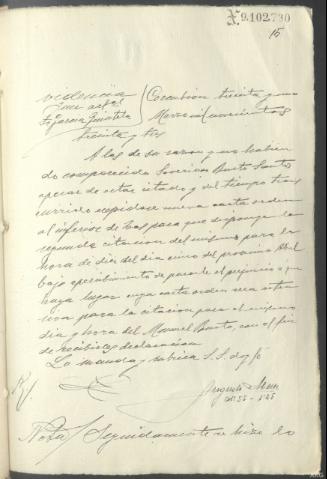 9.102.730
15
Providencia
Juez acctal
Sr Garcia
treinta y tres
Marzo mil novecientos
A los de su razon y no habien
do comparecido Saverino Busto Santos
apesar de estar citado y del tiempo trans
currido expidase nueva carta orden
al inferior de para que disponga la
segunda citacion del mismo para la
hora de diez del dia cinco del proximo Abril
bajo apercibimiento de pararle el perjuicio a que
haya lugar cuya carta orden sera exten
siva para la citacion para el mismo
dia y hora del Manuel Busto, con el fin
de recibirles declaracion.
Lo mando y rubrica S.S. doy fe
Nota/ Seguidamente se hizo lo